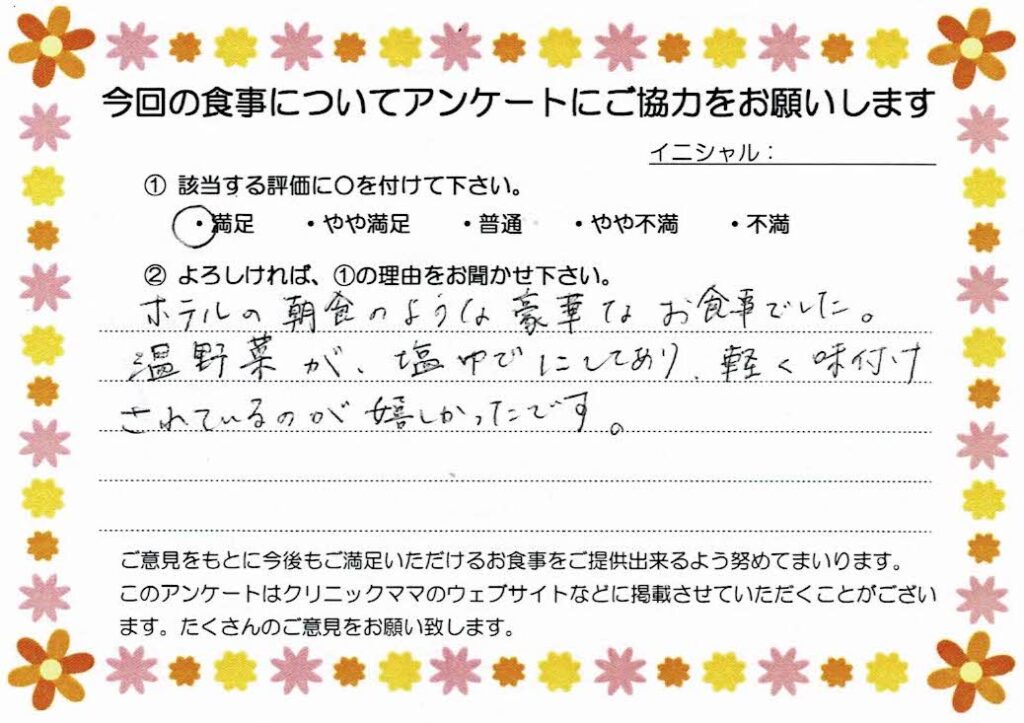 今回の食事についてアンケートにご協力をお願いします
イニシャル：
① 該当する評価に〇を付けて下さい。
・満足 ・やや満足 ・普通 ・やや不満 ・不満
② よろしければ、①の理由をお聞かせ下さい。
ホテルの朝食のような豪華なお食事でした。
温野菜が、塩ゆでにしてあり、軽く味付け
されているのが嬉しかったです。
ご意見をもとに今後もご満足いただけるお食事をご提供出来るよう努めてまいります。
このアンケートはクリニックママのウェブサイトなどに掲載させていただくことがござい
ます。たくさんのご意見をお願い致します。